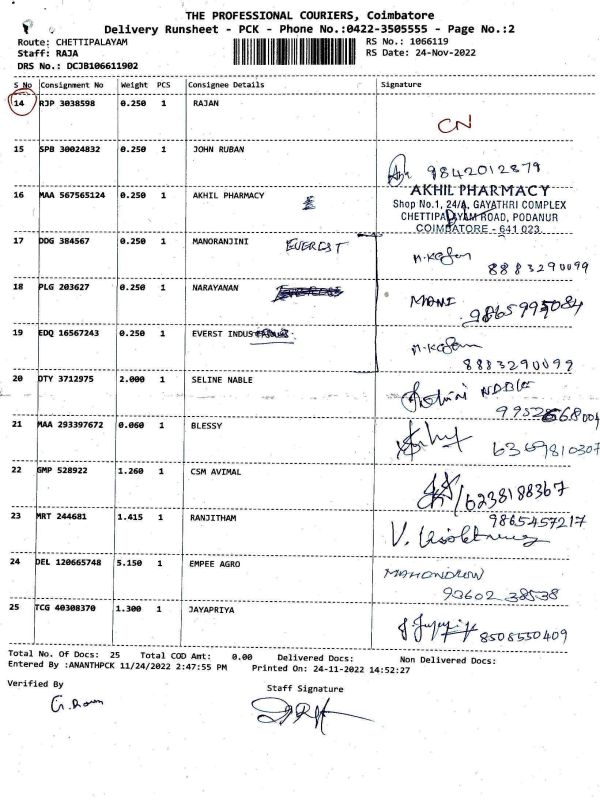 THE PROFESSIONAL COURIERS, Coimbatore
Delivery Runsheet - PCK - Phone No.:0422-3505555 - Page No.:2
Route: CHETTIPALAYAM
Staff: RAJA
DRS No.: DCJB106611902
RS No.: 1066119
RS Date: 24-Nov-2022
S No Consignment No Weight PCS Consignee Details Signature
14 RJP 3038598 0.250 1 RAJAN
CN
15 SPB 30024832 0.250 1 JOHN RUBAN
9842012879
16 MAA 567565124 0.250 1 AKHIL PHARMACY
AKHIL PHARMACY
Shop No.1, 24/A, GAYATHRI COMPLEX
CHETTIPALAYAM ROAD, PODANUR
COIMBATORE - 641 023
17 DDG 384567 0.250 1 MANORANJINI EVEREST
8883290099
18 PLG 203627 0.250 1 NARAYANAN
MANI
19 EDQ 16567243 0.250 1 EVERST
8883290099
20 DTY 3712975 2.000 1 SELINE NABLE
21 MAA 293397672 0.060 1 BLESSY
6369810307
22 GMP 528922 1.260 1 CSM AVIMAL
6238188367
23 MRT 244681 1.415 1 RANJITHAM
9865457217
V.
24 DEL 120665748 5.150 1 EMPEE AGRO
90602 38538
25 TCG 40308370 1.300 1 JAYAPRIYA
8508550409
Total No. Of Docs: 25 Total COD Amt: 0.00 Delivered Docs: Non Delivered Docs:
Entered By :ANANTHPCK 11/24/2022 2:47:55 PM Printed On: 24-11-2022 14:52:27
Verified By
Staff Signature